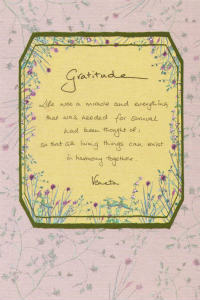 Gratitude
Life was a miracle and everything
that was needed for survival
had been thought of;
so that all living things can exist
in harmony together.
Veneta